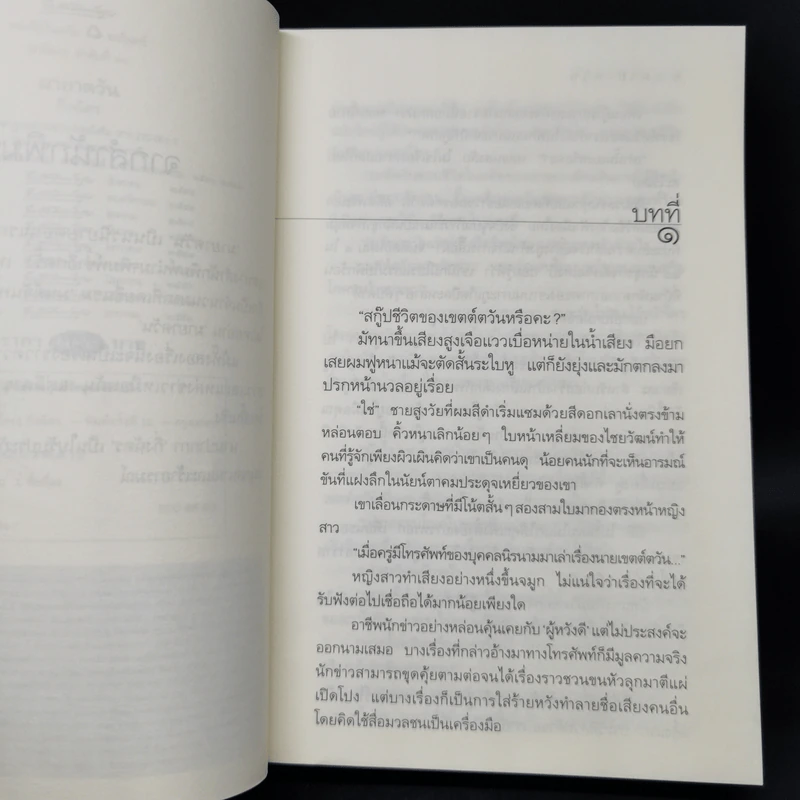 บทที่
๑
“สกู๊ปชีวิตของเขตต์ตวันหรือคะ ?”
มัทนาขึ้นเสียงสูงเจือแววเบื่อหน่ายในน้ำเสียง มือยก
เสยผมฟูหนาแม้จะตัดสั้นระใบหู แต่ก็ยังยุ่งและมักตกลงมา
ปรกหน้านวลอยู่เรื่อย
“ใช่” ชายสูงวัยที่ผมสีดำเริ่มแซมด้วยสีดอกเลานั่งตรงข้าม
หล่อนตอบ คิ้วหนาเลิกน้อยๆ ใบหน้าเหลี่ยมของไชยวัฒน์ทำให้
คนที่รู้จักเพียงผิวเผินคิดว่าเขาเป็นคนดุ น้อยคนนักที่จะเห็นอารมณ์
ขันที่แฝงลึกในนัยน์ตาคมประดุจเหยี่ยวของเขา
เขาเลื่อนกระดาษที่มีโน้ตสั้นๆ สองสามใบมากองตรงหน้าหญิง
สาว
“เมื่อครู่มีโทรศัพท์ของบุคคลนิรนามมาเล่าเรื่องนายเขตต์ตวัน...”
หญิงสาวทำเสียงอย่างหนึ่งขึ้นจมูก ไม่แน่ใจว่าเรื่องที่จะได้
รับฟังต่อไปเชื่อถือได้มากน้อยเพียงใด
อาชีพนักข่าวอย่างหล่อนคุ้นเคยกับ ‘ผู้หวังดี’ แต่ไม่ประสงค์จะ
ออกนามเสมอ บางเรื่องที่กล่าวอ้างมาทางโทรศัพท์ก็มีมูลความจริง
นักข่าวสามารถขุดคุ้ยตามต่อจนได้เรื่องราวชวนขนหัวลุกมาตีแผ่
เปิดโปง แต่บางเรื่องก็เป็นการใส่ร้ายหวังทำลายชื่อเสียงคนอื่น
โดยคิดใช้สื่อมวลชนเป็นเครื่องมือ